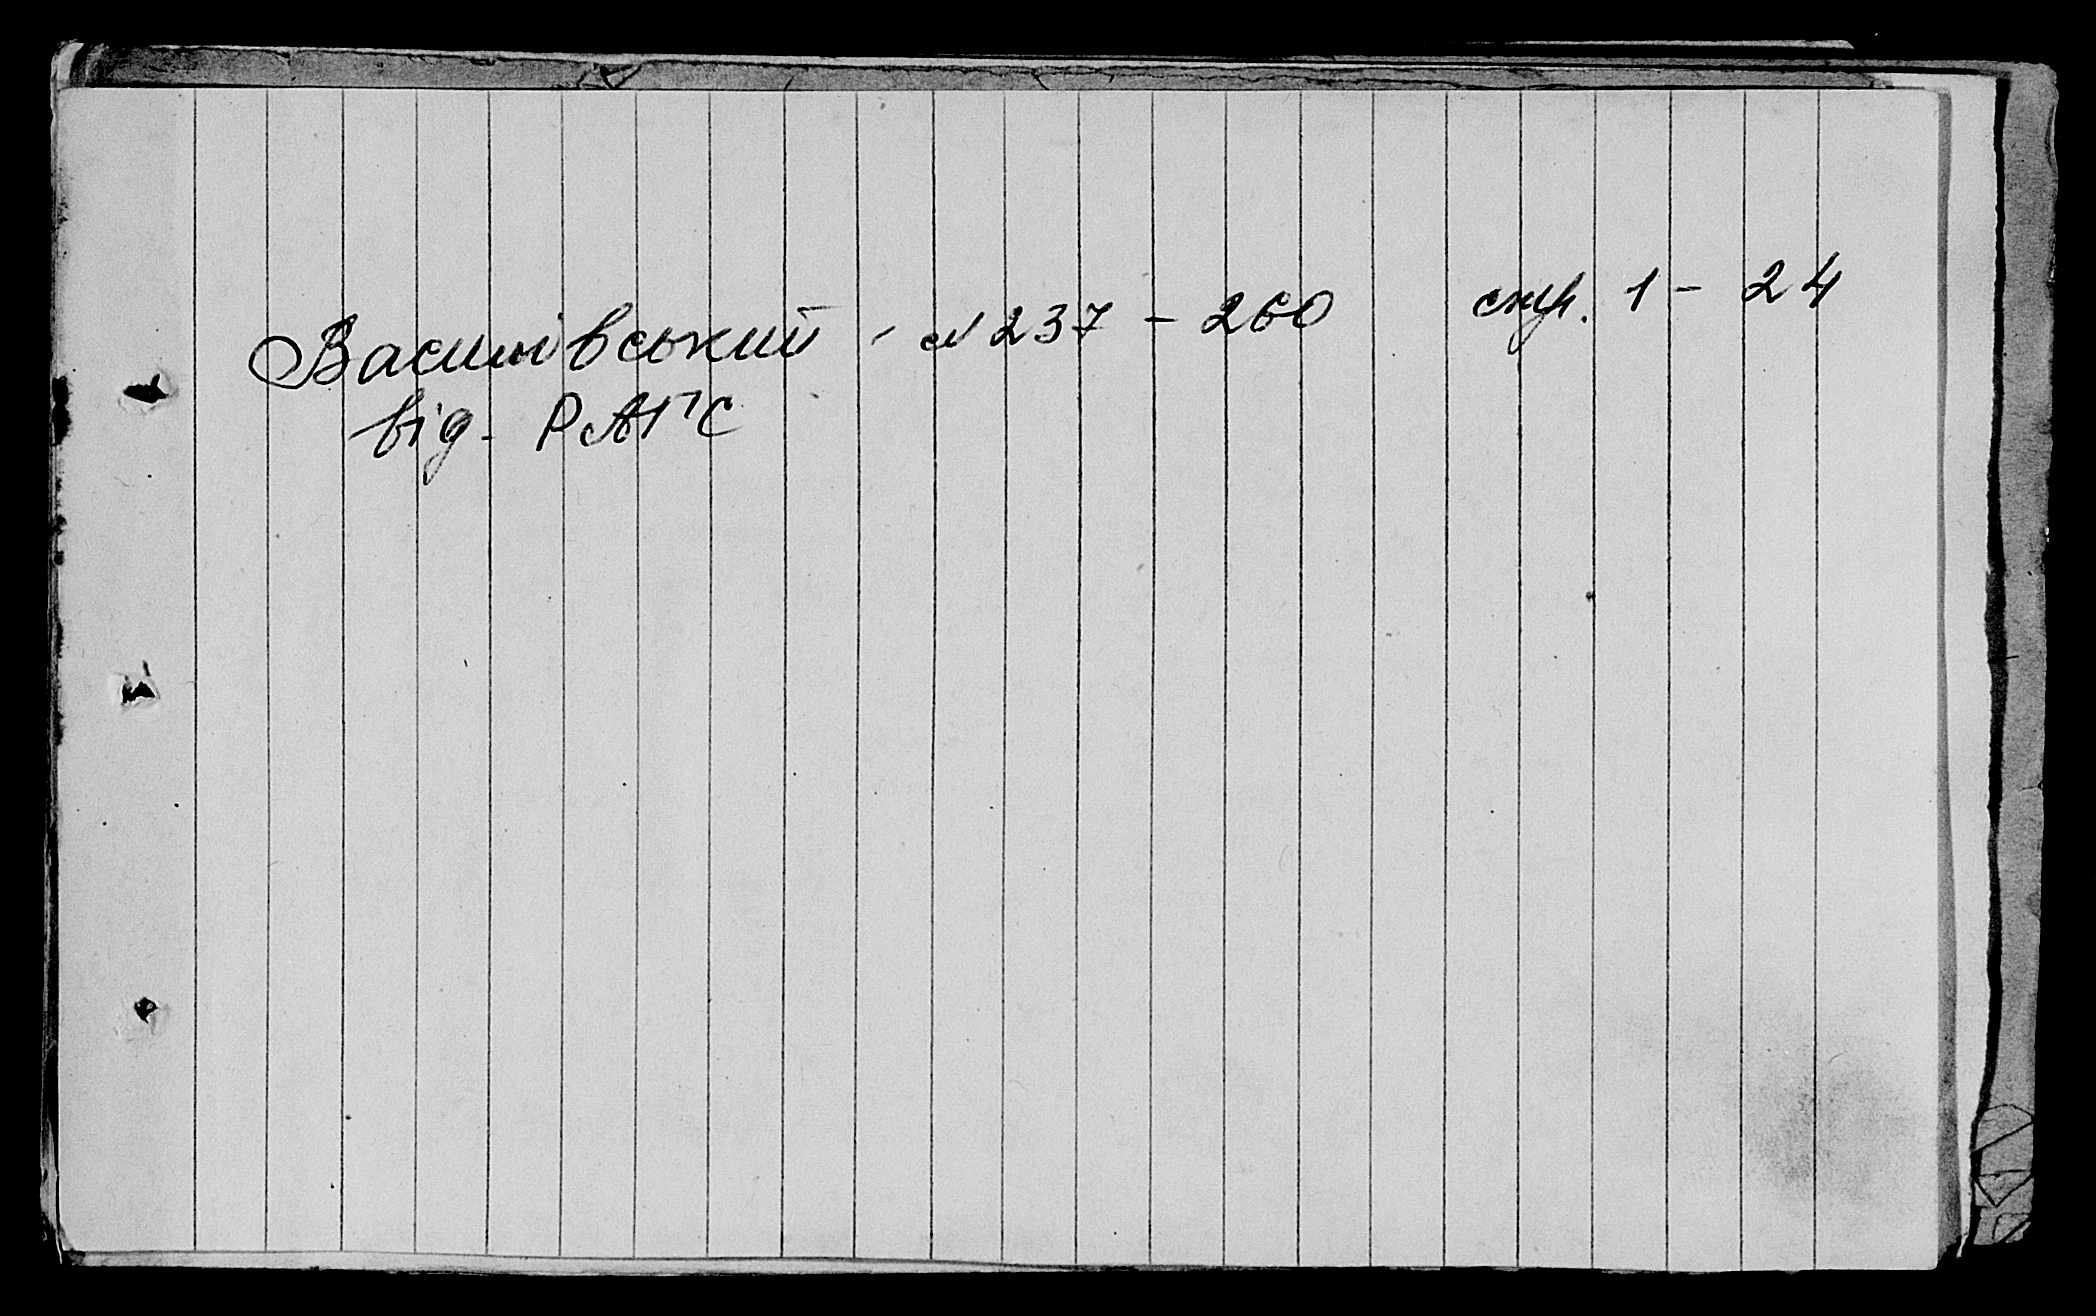 Василівський - № 237 - 260 стр. 1 - 24
від. РАГС